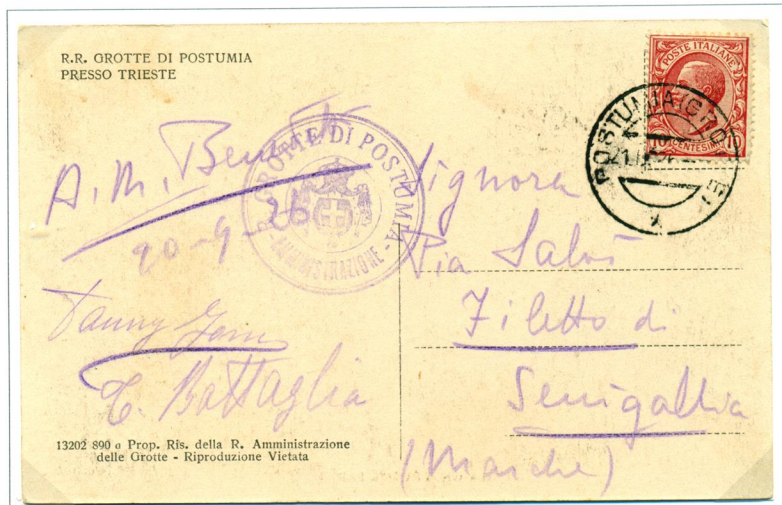 R.R. GROTTE DI POSTUMIA
PRESSO TRIESTE
POSTE ITALIANE
10 CENTESIMI 10
POSTUMIA (GROTTE)
R. GROTTE DI POSTUMIA
- AMMINISTRAZIONE -
A. M.
20-9-26
Battaglia
Signora
Pia
Filetto di
Senigallia
(Marche)
13202 890 a Prop. Ris. della R. Amministrazione
delle Grotte - Riproduzione Vietata